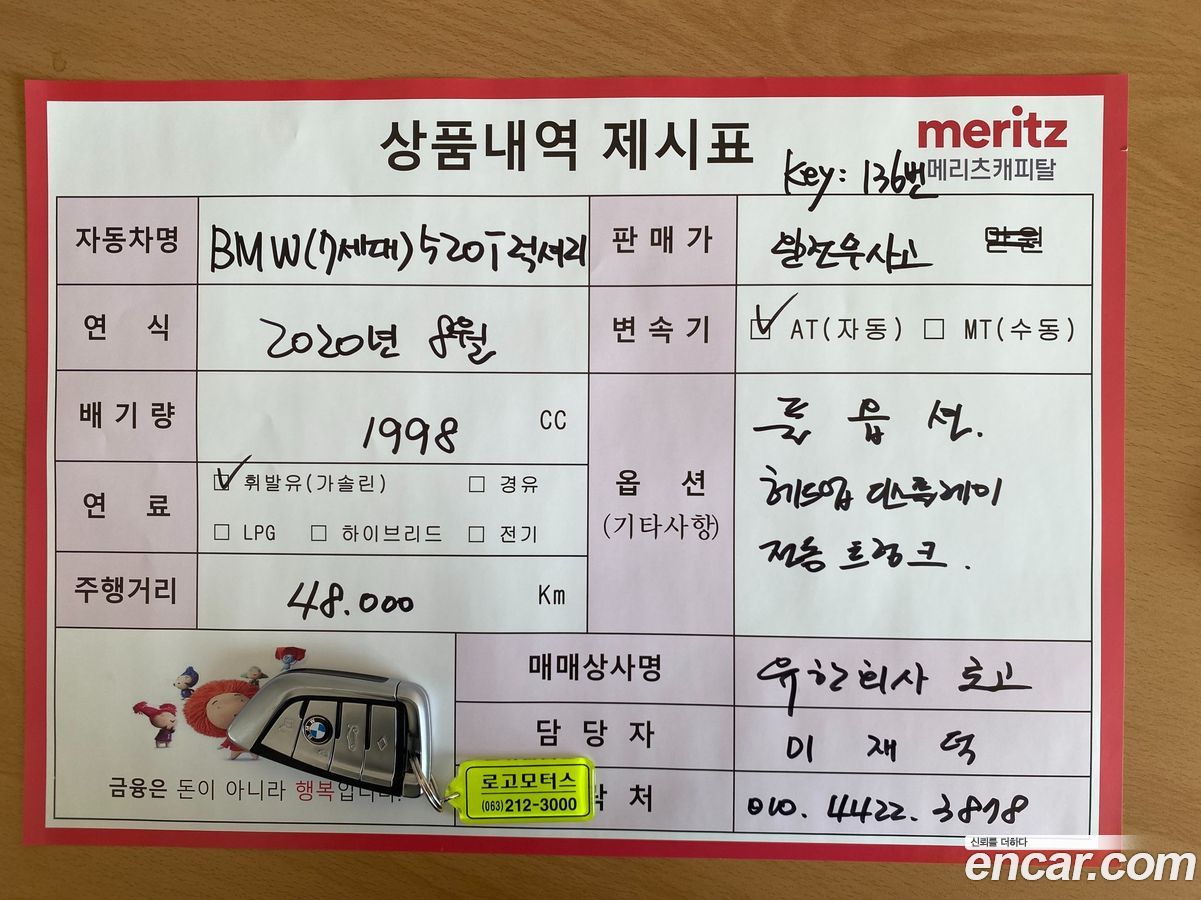 상품내역 제시표
meritz
메리츠캐피탈
Key: 136번
자동차명
BMW(7세대) 520i 럭셔리
판매가
완전무사고
만원
연 식
2020년 8월
변속기
AT(자동) MT(수동)
배기량
1998
CC
연 료
휘발유(가솔린) 경유
LPG 하이브리드 전기
옵 션
(기타사항)
풀 옵 션.
헤드업 디스플레이
전동 트렁크.
주행거리
48.000
Km
매매상사명
유한회사 로고
담 당 자
이 재 덕
락 처
010. 4422. 3878
금융은 돈이 아니라 행복입니다.
로고모터스
(063)212-3000
신뢰를 더하다
encar.com